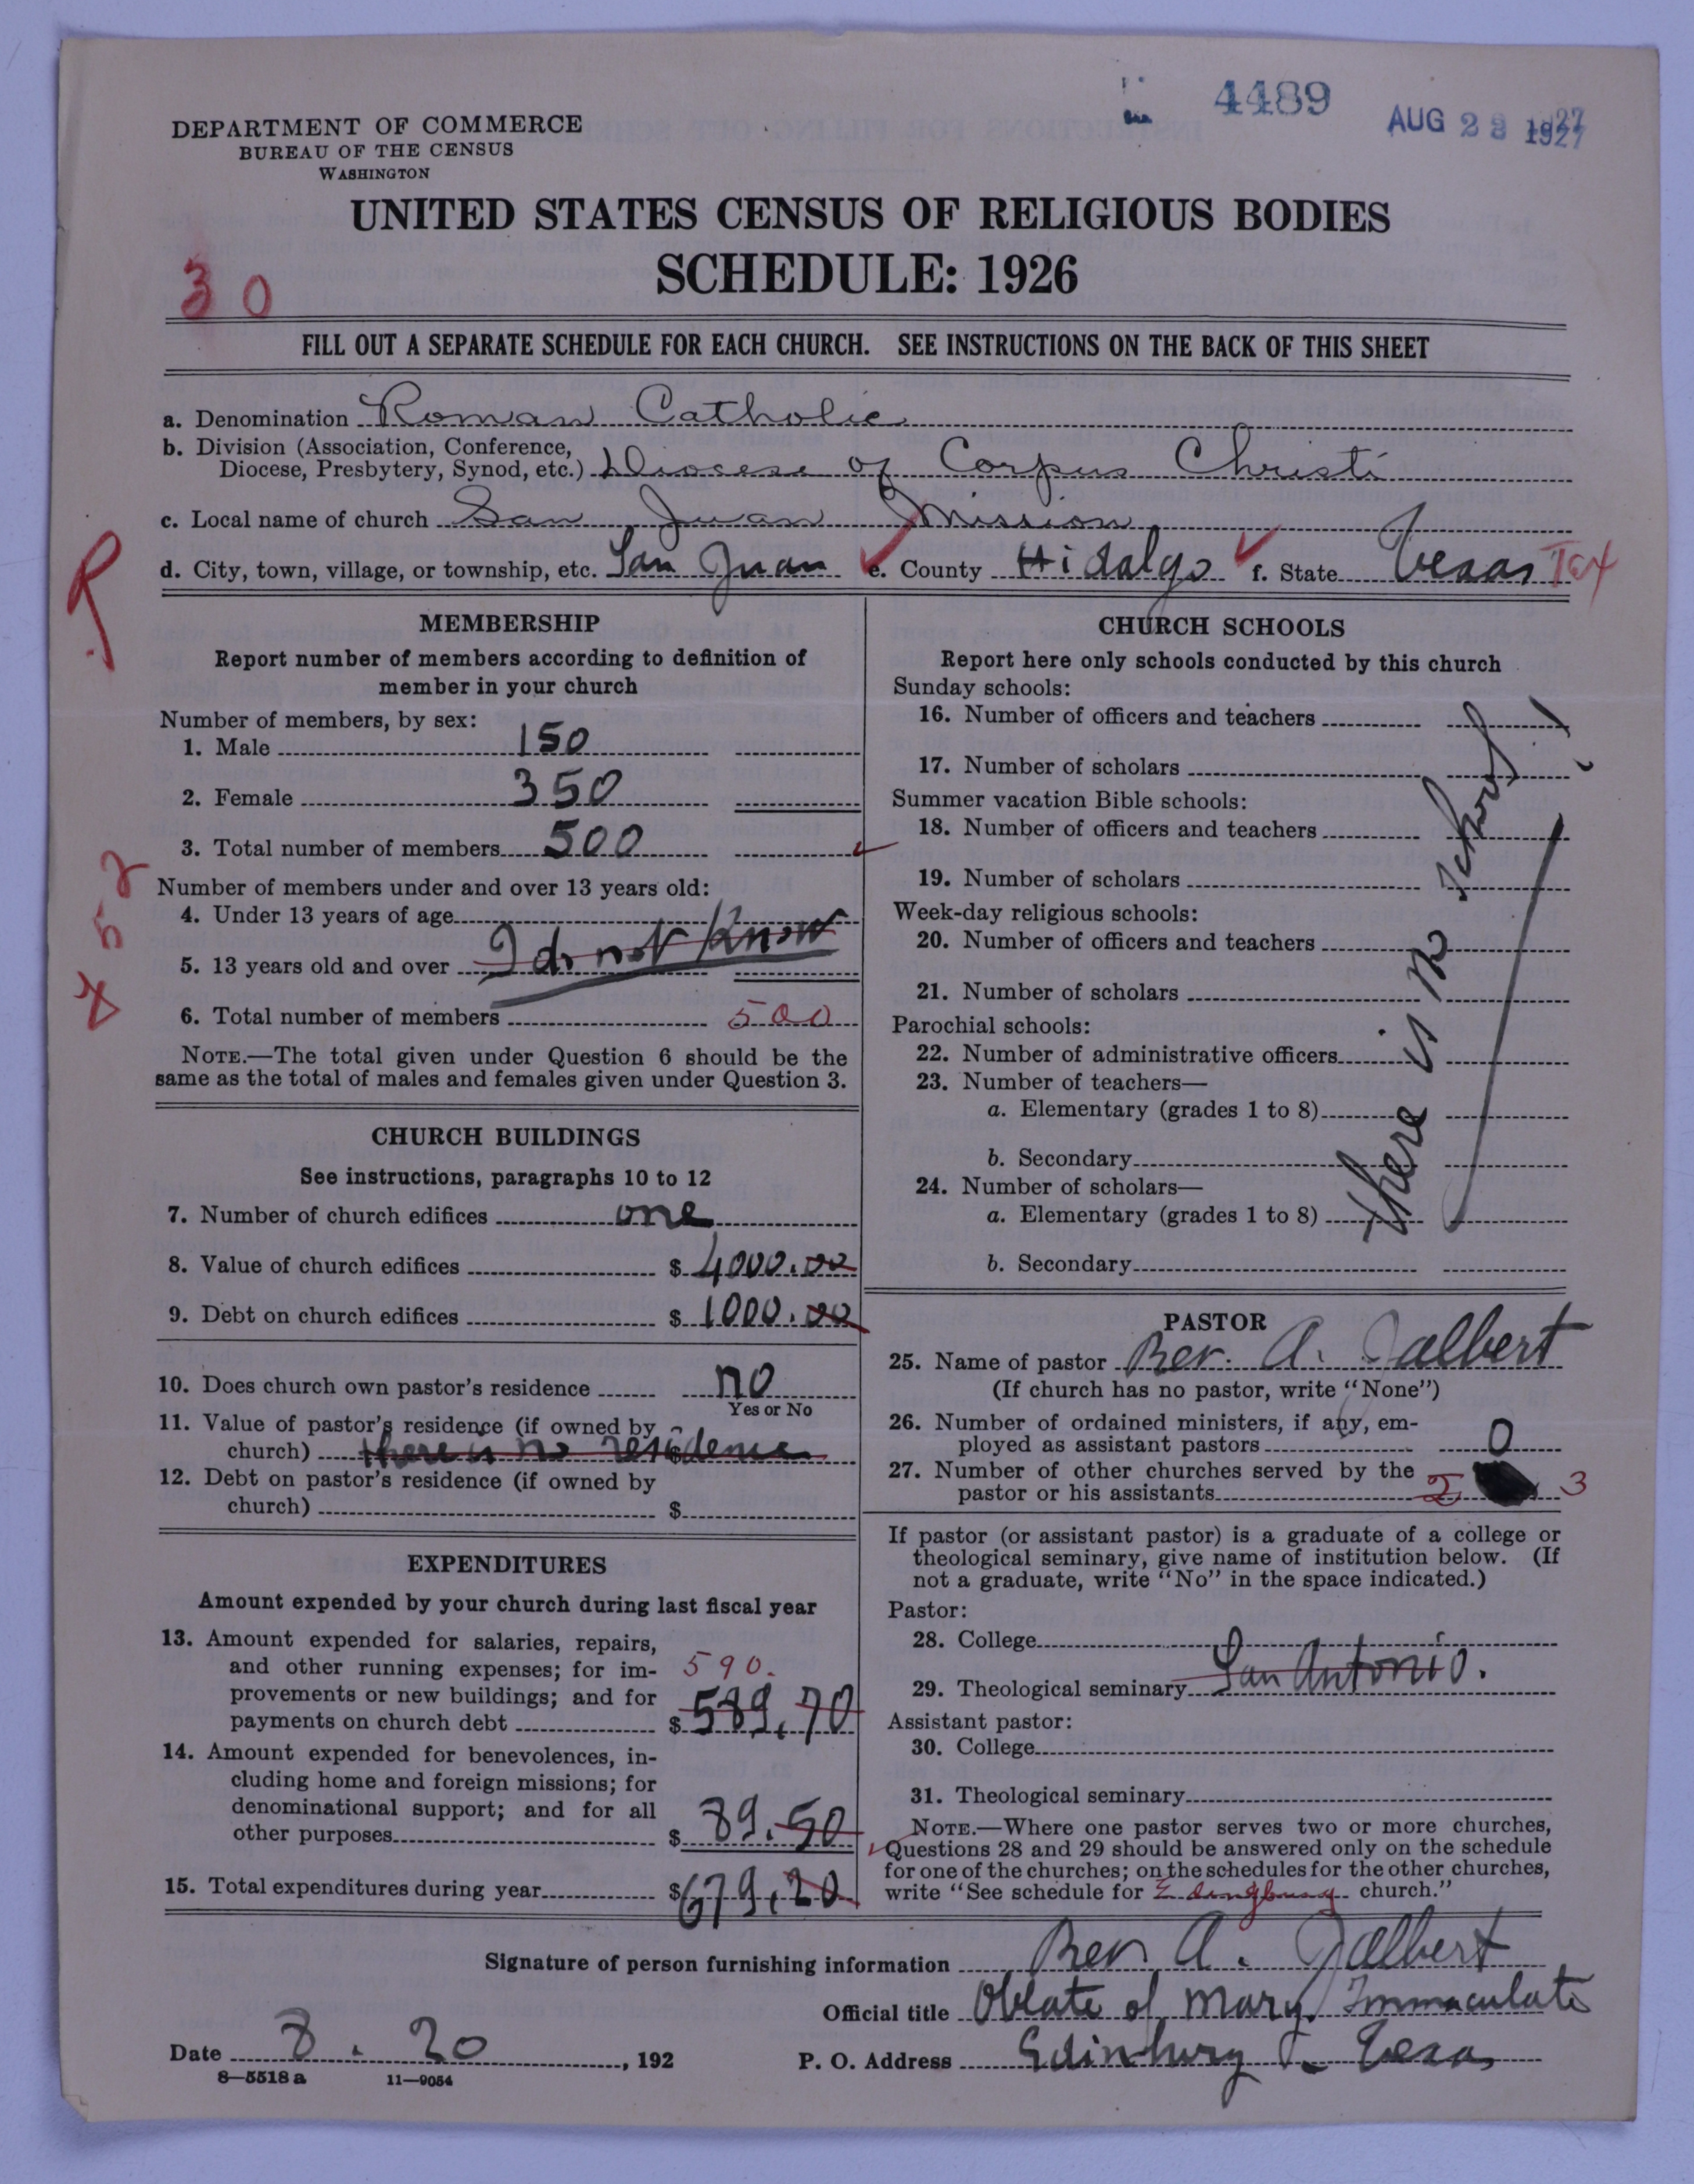 4489
AUG 23 1927
DEPARTMENT OF COMMERCE
BUREAU OF THE CENSUS
WASHINGTON
UNITED STATES CENSUS OF RELIGIOUS BODIES
SCHEDULE: 1926
30
FILL OUT A SEPARATE SCHEDULE FOR EACH CHURCH. SEE INSTRUCTIONS ON THE BACK OF THIS SHEET
a. Denomination Roman Catholic
b. Division (Association, Conference,
Diocese, Presbytery, Synod, etc.) Diocese of Corpus Christi
c. Local name of church San Juan Mission
d. City, town, village, or township, etc. San Juan e. County Hidalgo f. State Texas Tex
R
MEMBERSHIP
Report number of members according to definition of
member in your church
Number of members, by sex:
1. Male 150
2. Female 350
3. Total number of members 500
Number of members under and over 13 years old:
4. Under 13 years of age
5. 13 years old and over I do not know
6. Total number of members 500
NOTE.—The total given under Question 6 should be the
same as the total of males and females given under Question 3.
CHURCH BUILDINGS
See instructions, paragraphs 10 to 12
7. Number of church edifices one
8. Value of church edifices $ 4000.00
9. Debt on church edifices $ 1000.00
10. Does church own pastor's residence no
Yes or No
11. Value of pastor's residence (if owned by
church) there is no residence $
12. Debt on pastor's residence (if owned by
church) $
EXPENDITURES
Amount expended by your church during last fiscal year
13. Amount expended for salaries, repairs,
and other running expenses; for im- 590.
provements or new buildings; and for
payments on church debt $ 589.70
14. Amount expended for benevolences, in-
cluding home and foreign missions; for
denominational support; and for all
other purposes $ 89.50
15. Total expenditures during year $ 679.20
CHURCH SCHOOLS
Report here only schools conducted by this church
Sunday schools:
16. Number of officers and teachers
17. Number of scholars
Summer vacation Bible schools:
18. Number of officers and teachers
19. Number of scholars
Week-day religious schools:
20. Number of officers and teachers
21. Number of scholars
Parochial schools:
22. Number of administrative officers
23. Number of teachers—
a. Elementary (grades 1 to 8)
b. Secondary
24. Number of scholars—
a. Elementary (grades 1 to 8)
b. Secondary
there is no school!
PASTOR
25. Name of pastor Rev. A. Jalbert
(If church has no pastor, write "None")
26. Number of ordained ministers, if any, em-
ployed as assistant pastors 0
27. Number of other churches served by the
pastor or his assistants 2 3
If pastor (or assistant pastor) is a graduate of a college or
theological seminary, give name of institution below. (If
not a graduate, write "No" in the space indicated.)
Pastor:
28. College
29. Theological seminary San Antonio.
Assistant pastor:
30. College
31. Theological seminary
NOTE.—Where one pastor serves two or more churches,
Questions 28 and 29 should be answered only on the schedule
for one of the churches; on the schedules for the other churches,
write "See schedule for Edingburg church."
Signature of person furnishing information Rev A. Jalbert
Official title Oblate of Mary Immaculate
Date 8. 20, 192
P. O. Address Edinburg Texas
8—5518 a 11—9054